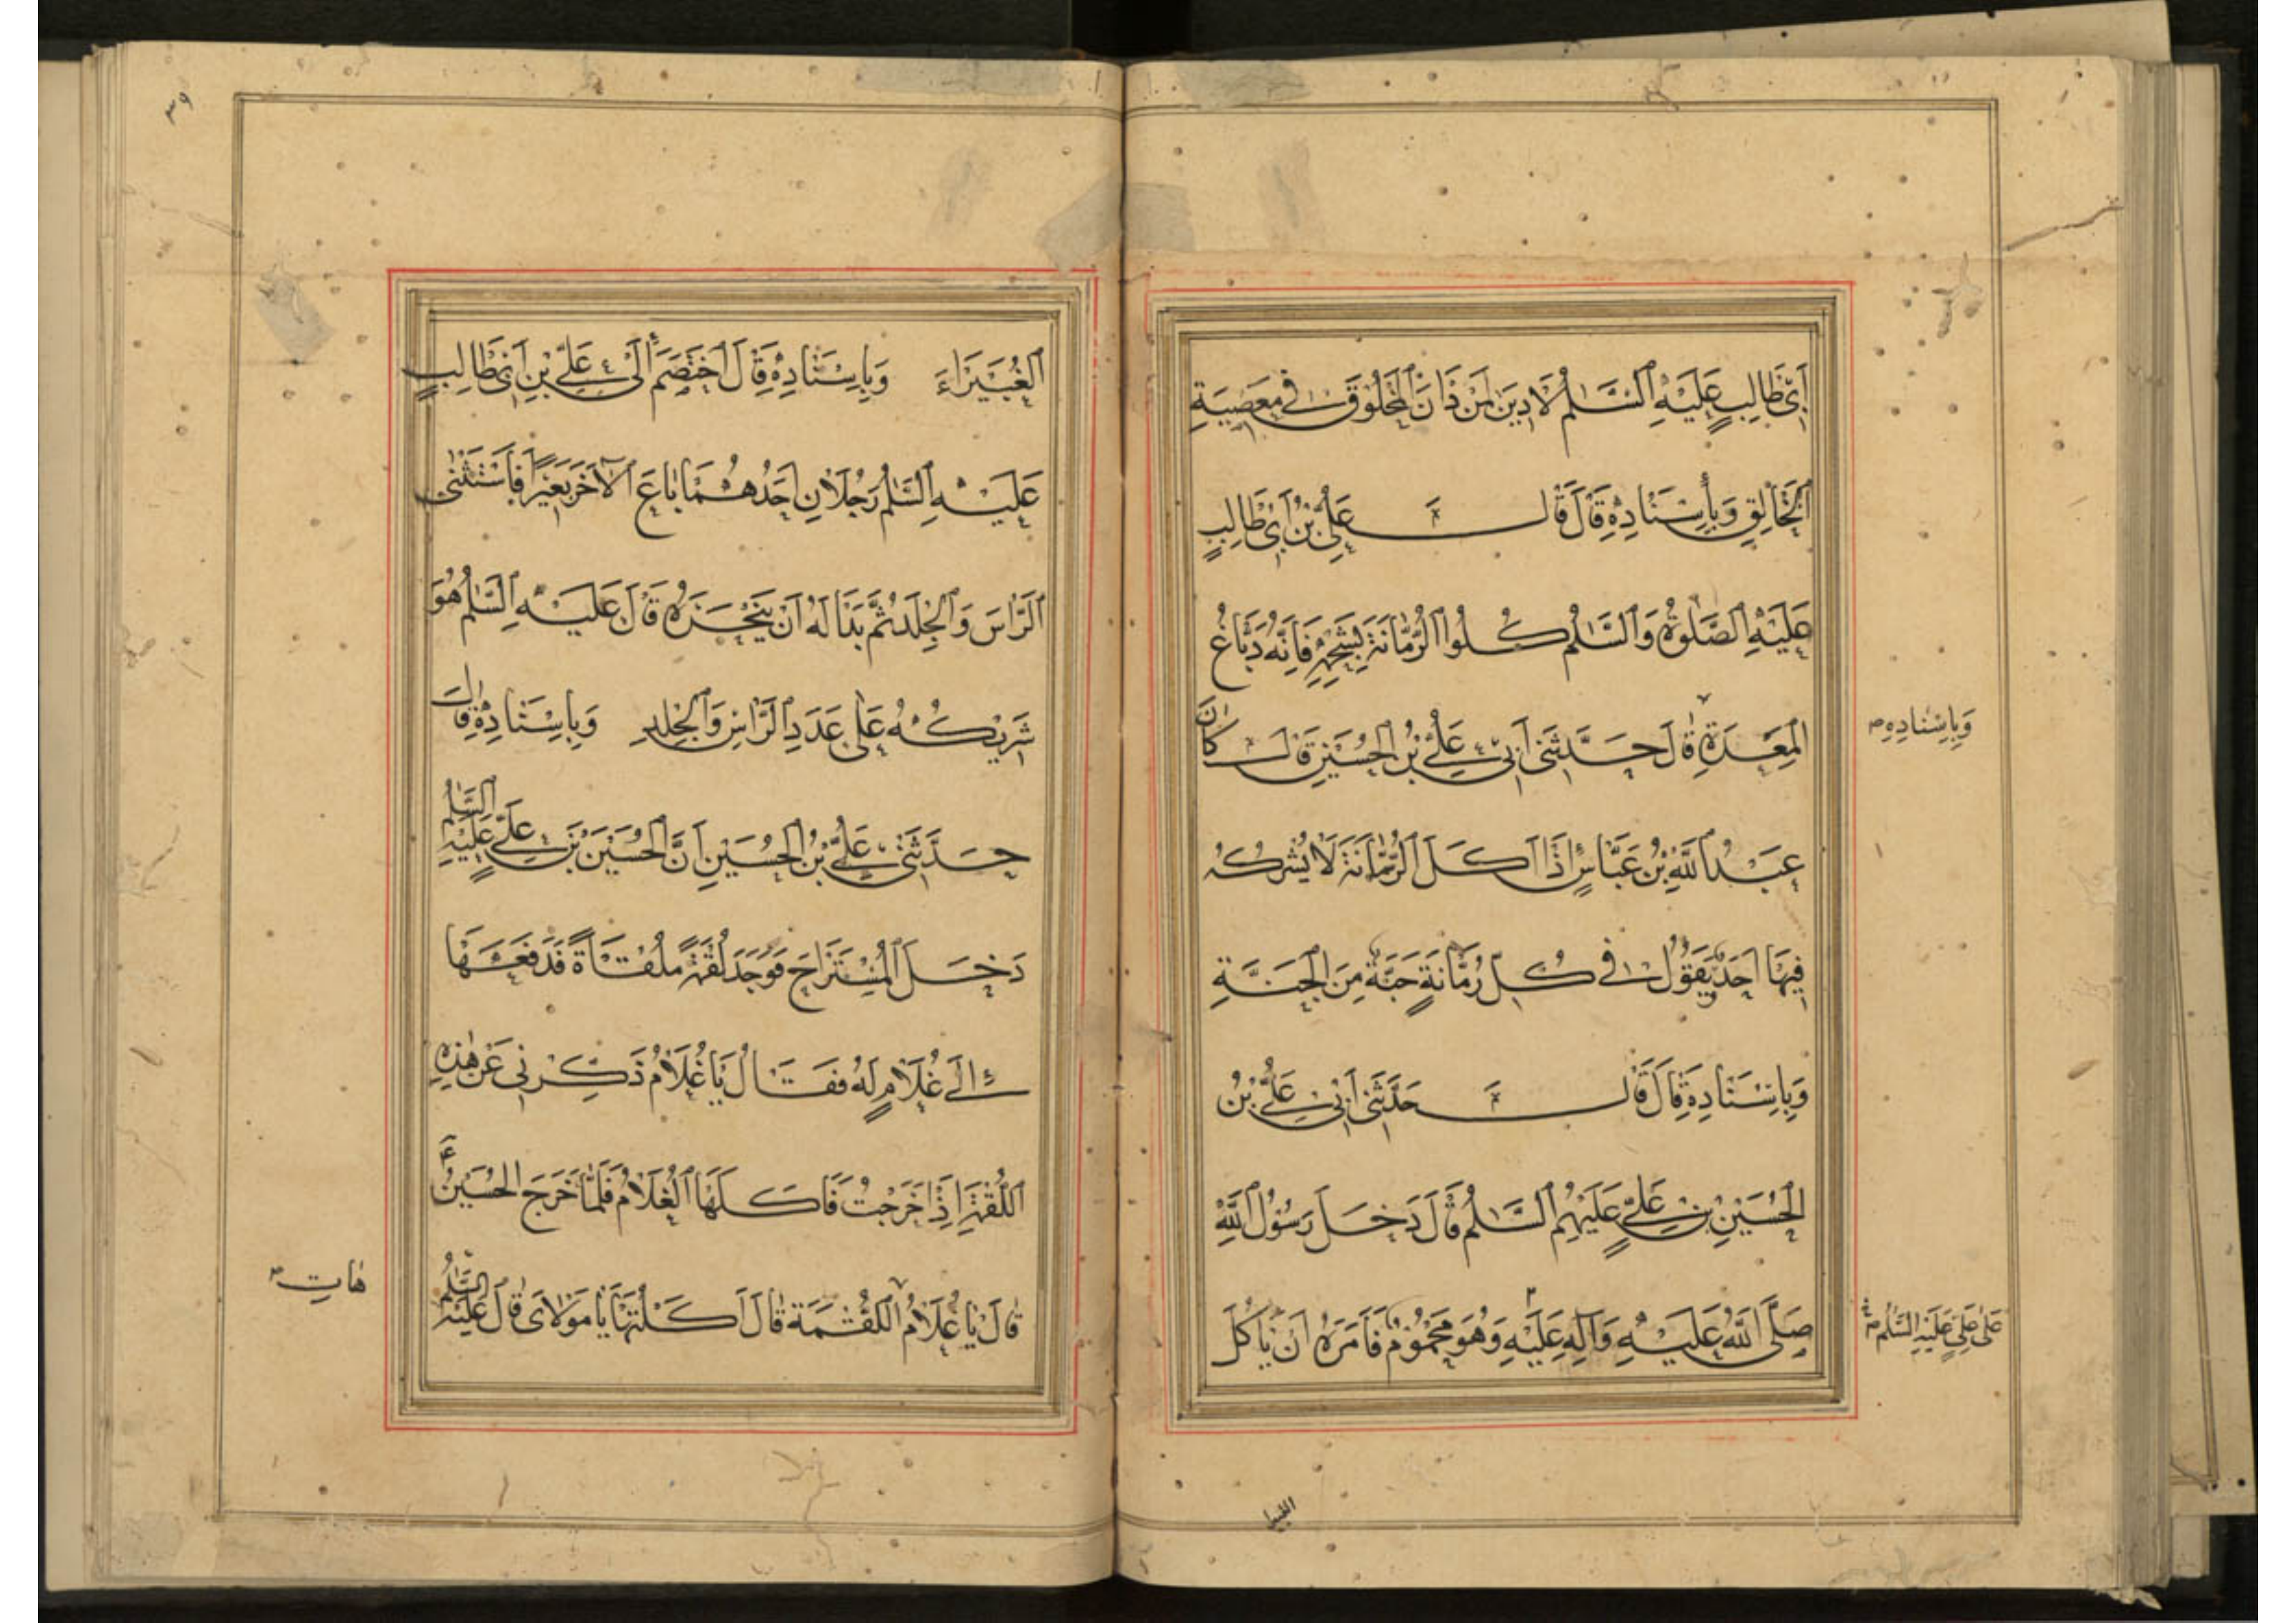 اَبِي طَالِبٍ عَلَيْهِ السَّلٰمُ لَا دِينَ لِمَنْ دَانَ لِمَخْلُوقٍ فِي مَعْصِيَةِ
الْخَالِقِ وَبِاِسْنَادِهِ قَالَ قَالَ عَلِيُّ بْنُ اَبِي طَالِبٍ
عَلَيْهِ الصَّلٰوةُ وَالسَّلٰمُ كُلُوا الرُّمَّانَةَ بِشَحْمِهِ فَاِنَّهُ دَبَّاغُ
الْمَعِدَةِ قَالَ حَدَّثَنِي اَبِي عَلِيُّ بْنُ الْحُسَيْنِ قَالَ كَانَ
وَبِاِسْنَادِهِ
عَبْدُ اللّٰهِ بْنُ عَبَّاسٍ اِذَا اَكَلَ الرُّمَّانَةَ لَا يُشْرِكُهُ
فِيهَا اَحَدٌ يَقُولُ فِي كُلِّ رُمَّانَةٍ حَبَّةٌ مِنَ الْجَنَّةِ
وَبِاِسْنَادِهِ قَالَ قَالَ حَدَّثَنِي اَبِي عَلِيُّ بْنُ
الْحُسَيْنِ بْنِ عَلِيٍّ عَلَيْهِمُ السَّلٰمُ قَالَ دَخَلَ رَسُولُ اللّٰهِ
صَلَّى اللّٰهُ عَلَيْهِ وَآلِهِ عَلَيْهِ وَهُوَ مَحْمُومٌ فَاَمَرَهُ اَنْ يَأْكُلَ
عَلٰى عَلِيٍّ عَلَيْهِ السَّلٰمُ
الغبيرا
٣٩
الْغُبَيْرَاءَ وَبِاِسْنَادِهِ قَالَ اخْتَصَمَ اِلٰى عَلِيِّ بْنِ اَبِي طَالِبٍ
عَلَيْهِ السَّلٰمُ رَجُلَانِ اَحَدُهُمَا بَاعَ الْآخَرَ بَعِيرًا فَاسْتَثْنٰى
الرَّاسَ وَالْجِلْدَ ثُمَّ بَدَا لَهُ اَنْ يَنْحَرَهُ قَالَ عَلَيْهِ السَّلٰمُ هُوَ
شَرِيكُهُ عَلٰى عَدَدِ الرَّاسِ وَالْجِلْدِ وَبِاِسْنَادِهِ قَالَ
حَدَّثَنِي عَلِيُّ بْنُ الْحُسَيْنِ اَنَّ الْحُسَيْنَ بْنَ عَلِيٍّ عَلَيْهِ السَّلٰمُ
دَخَلَ الْمُسْتَرَاحَ فَوَجَدَ لُقْمَةً مُلْقَاةً فَدَفَعَهَا
اِلٰى غُلَامٍ لَهُ فَقَالَ يَا غُلَامُ ذَكِّرْنِي عَنْ هٰذِهِ
اللُّقْمَةِ اِذَا خَرَجْتُ فَاَكَلَهَا الْغُلَامُ فَلَمَّا خَرَجَ الْحُسَيْنُ ع
قَالَ يَا غُلَامُ اللُّقْمَةَ قَالَ اَكَلْتُهَا يَا مَوْلَايَ قَالَ عَلَيْهِ السَّلٰمُ
هَاتِ